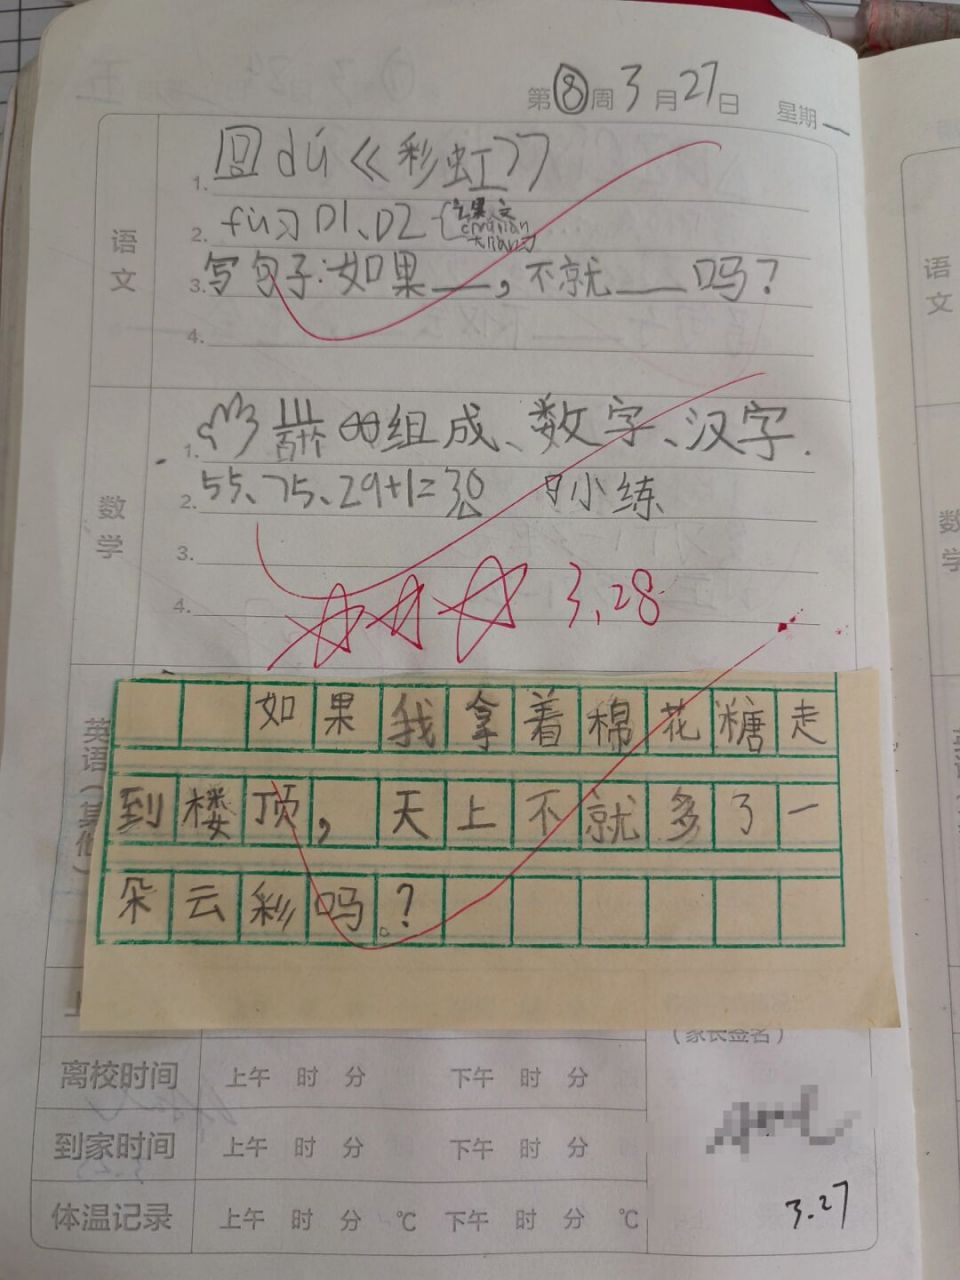 第⑧周3月27日 星期一
语文
1. 回dú《彩虹》
2. fùつD1、D2
3. 写句子:如果__,不就__吗?
4.
数学
1. 组成、数字、汉字.
2. 55、75、29+1=30 小练
3.
4.
3.28
英语(其他)
如果我拿着棉花糖走
到楼顶,天上不就多了一
朵云彩吗?
(家长签名)
离校时间 上午 时 分 下午 时 分
到家时间 上午 时 分 下午 时 分
体温记录 上午 时 分 ℃ 下午 时 分 ℃
3.27
语文